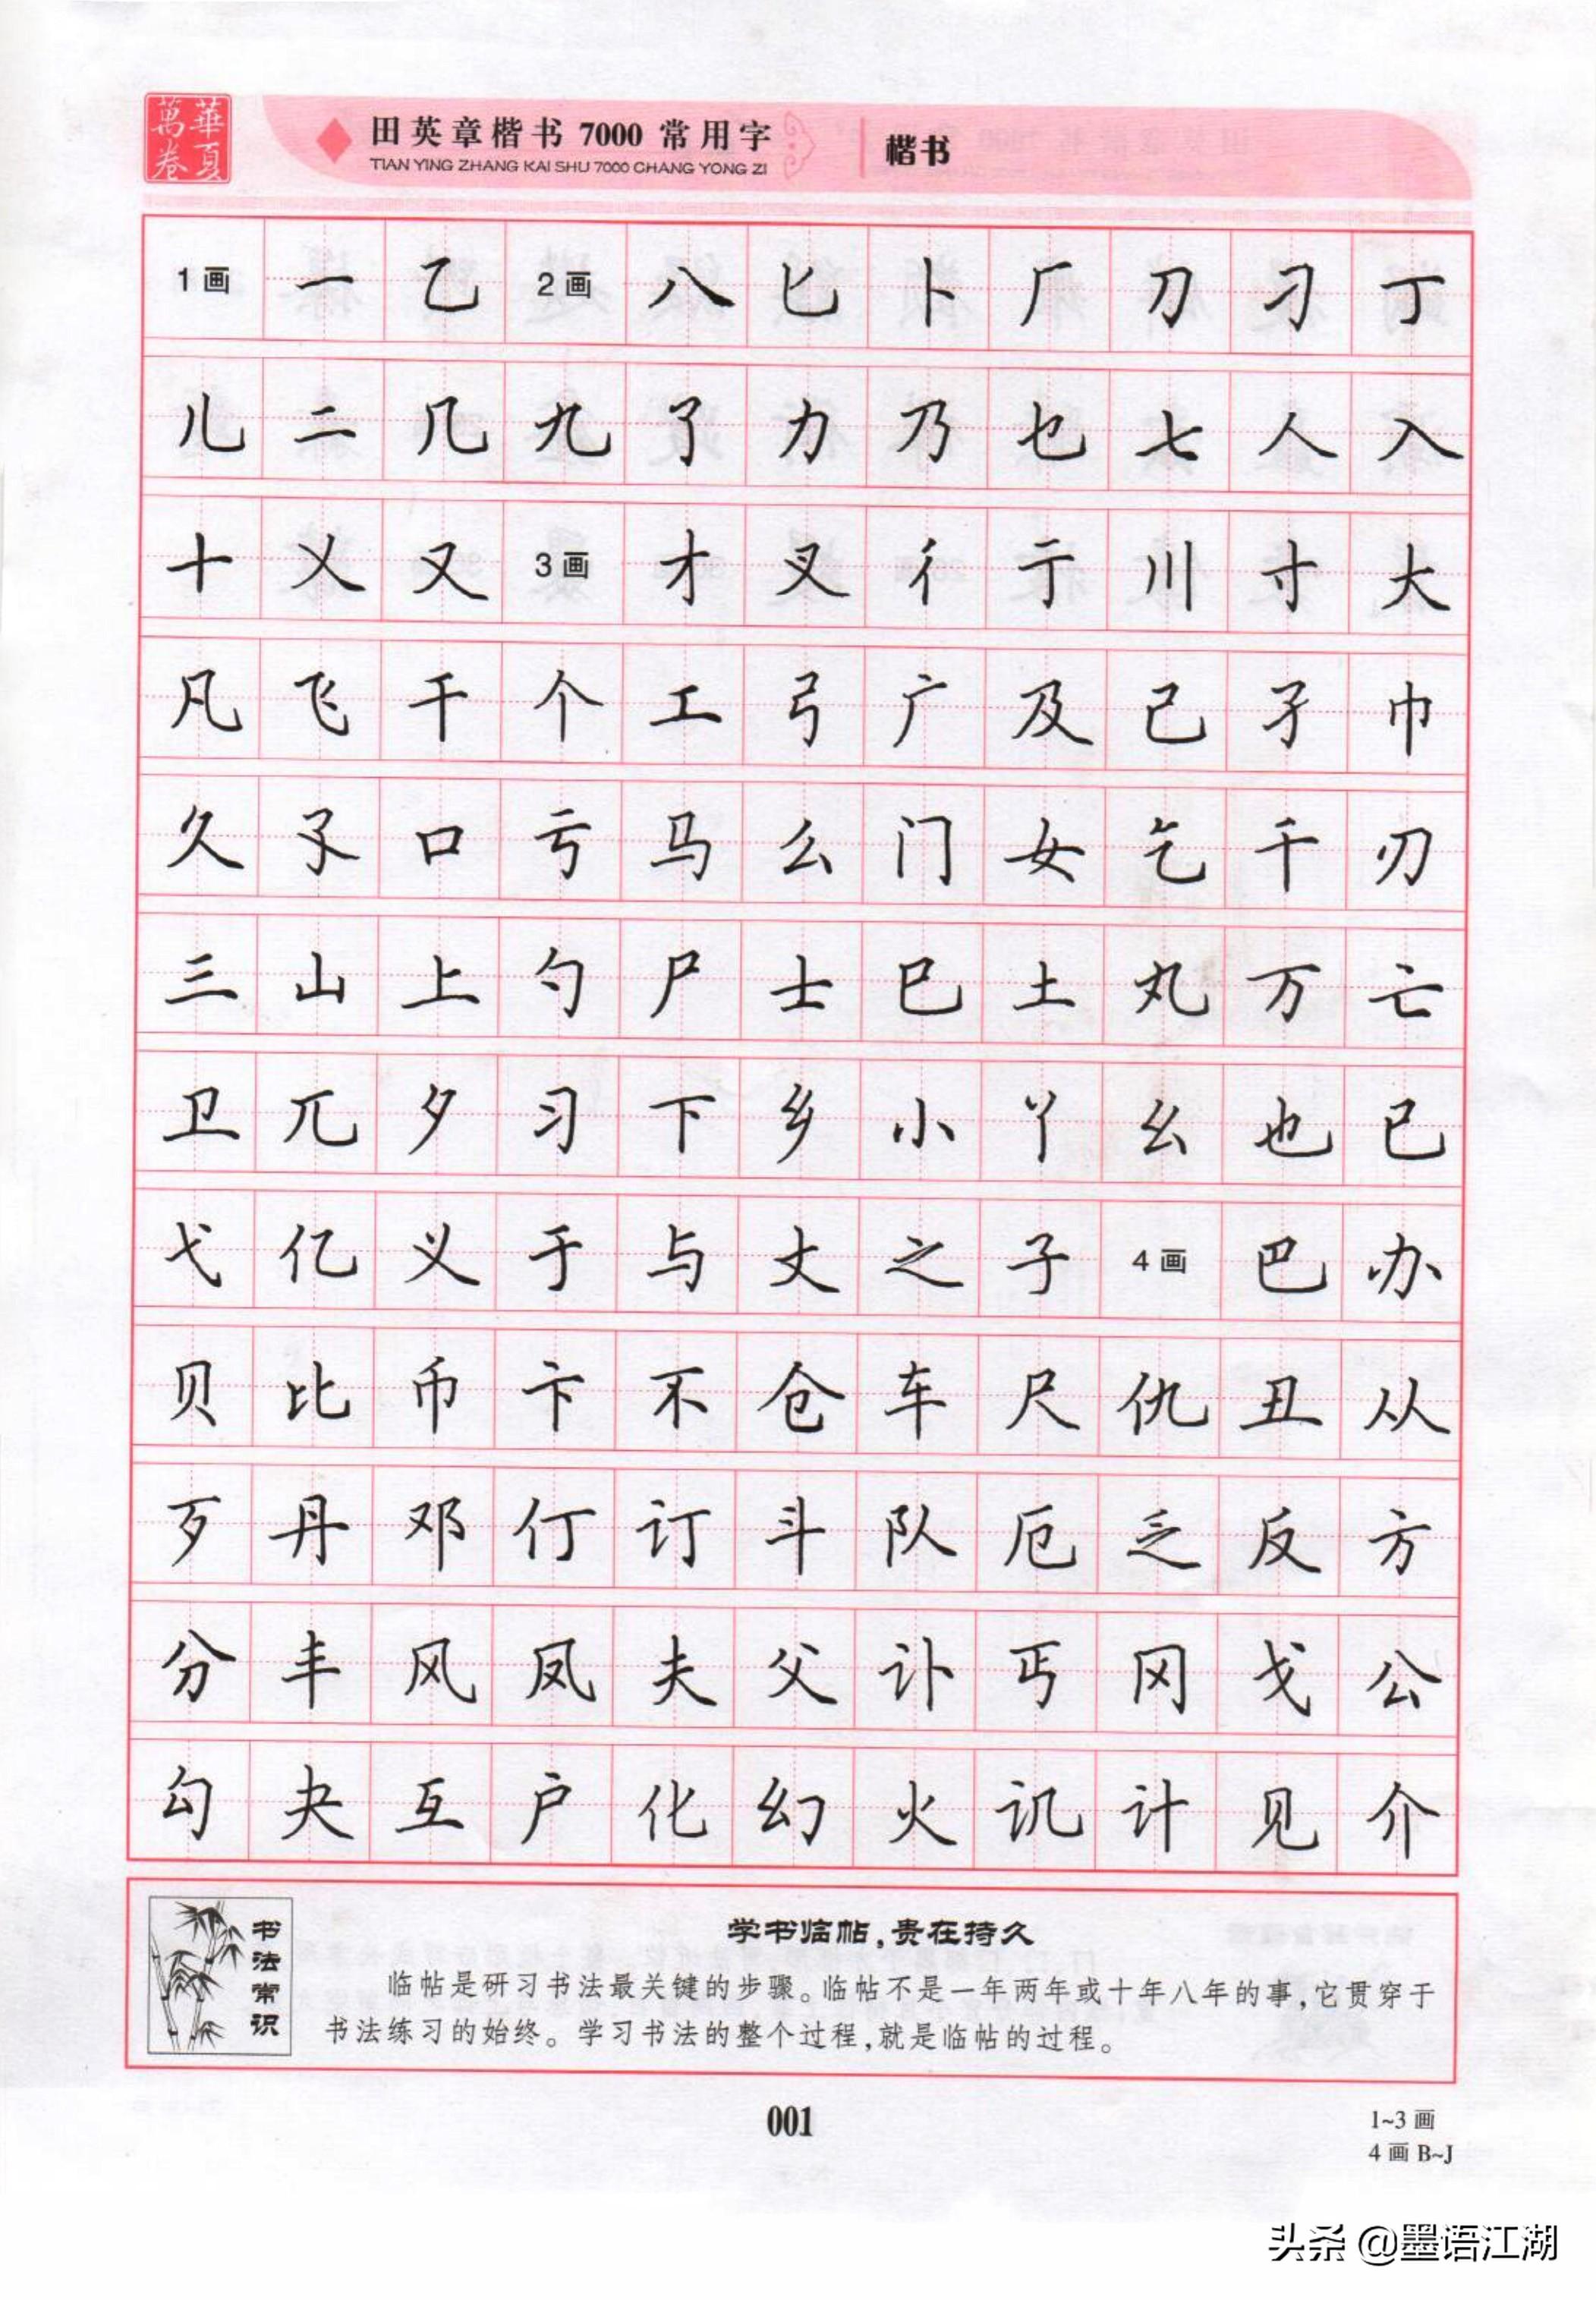 華夏
萬卷
田英章楷书 7000 常用字
TIAN YING ZHANG KAI SHU 7000 CHANG YONG ZI
楷书
1画 一 乙 2画 八 匕 卜 厂 刀 刁 丁
儿 二 几 九 了 力 乃 乜 七 人 入
十 乂 又 3画 才 叉 彳 亍 川 寸 大
凡 飞 干 个 工 弓 广 及 己 孑 巾
久 孓 口 亏 马 么 门 女 乞 千 刃
三 山 上 勺 尸 士 巳 土 丸 万 亡
卫 兀 夕 习 下 乡 小 丫 幺 也 已
弋 亿 义 于 与 丈 之 子 4画 巴 办
贝 比 币 卞 不 仓 车 尺 仇 丑 从
歹 丹 邓 仃 订 斗 队 厄 乏 反 方
分 丰 风 凤 夫 父 讣 丐 冈 戈 公
勾 夬 互 户 化 幻 火 讥 计 见 介
书法常识
学书临帖,贵在持久
临帖是研习书法最关键的步骤。临帖不是一年两年或十年八年的事,它贯穿于
书法练习的始终。学习书法的整个过程,就是临帖的过程。
001
1~3 画
4 画 B~J
头条 @墨语江湖